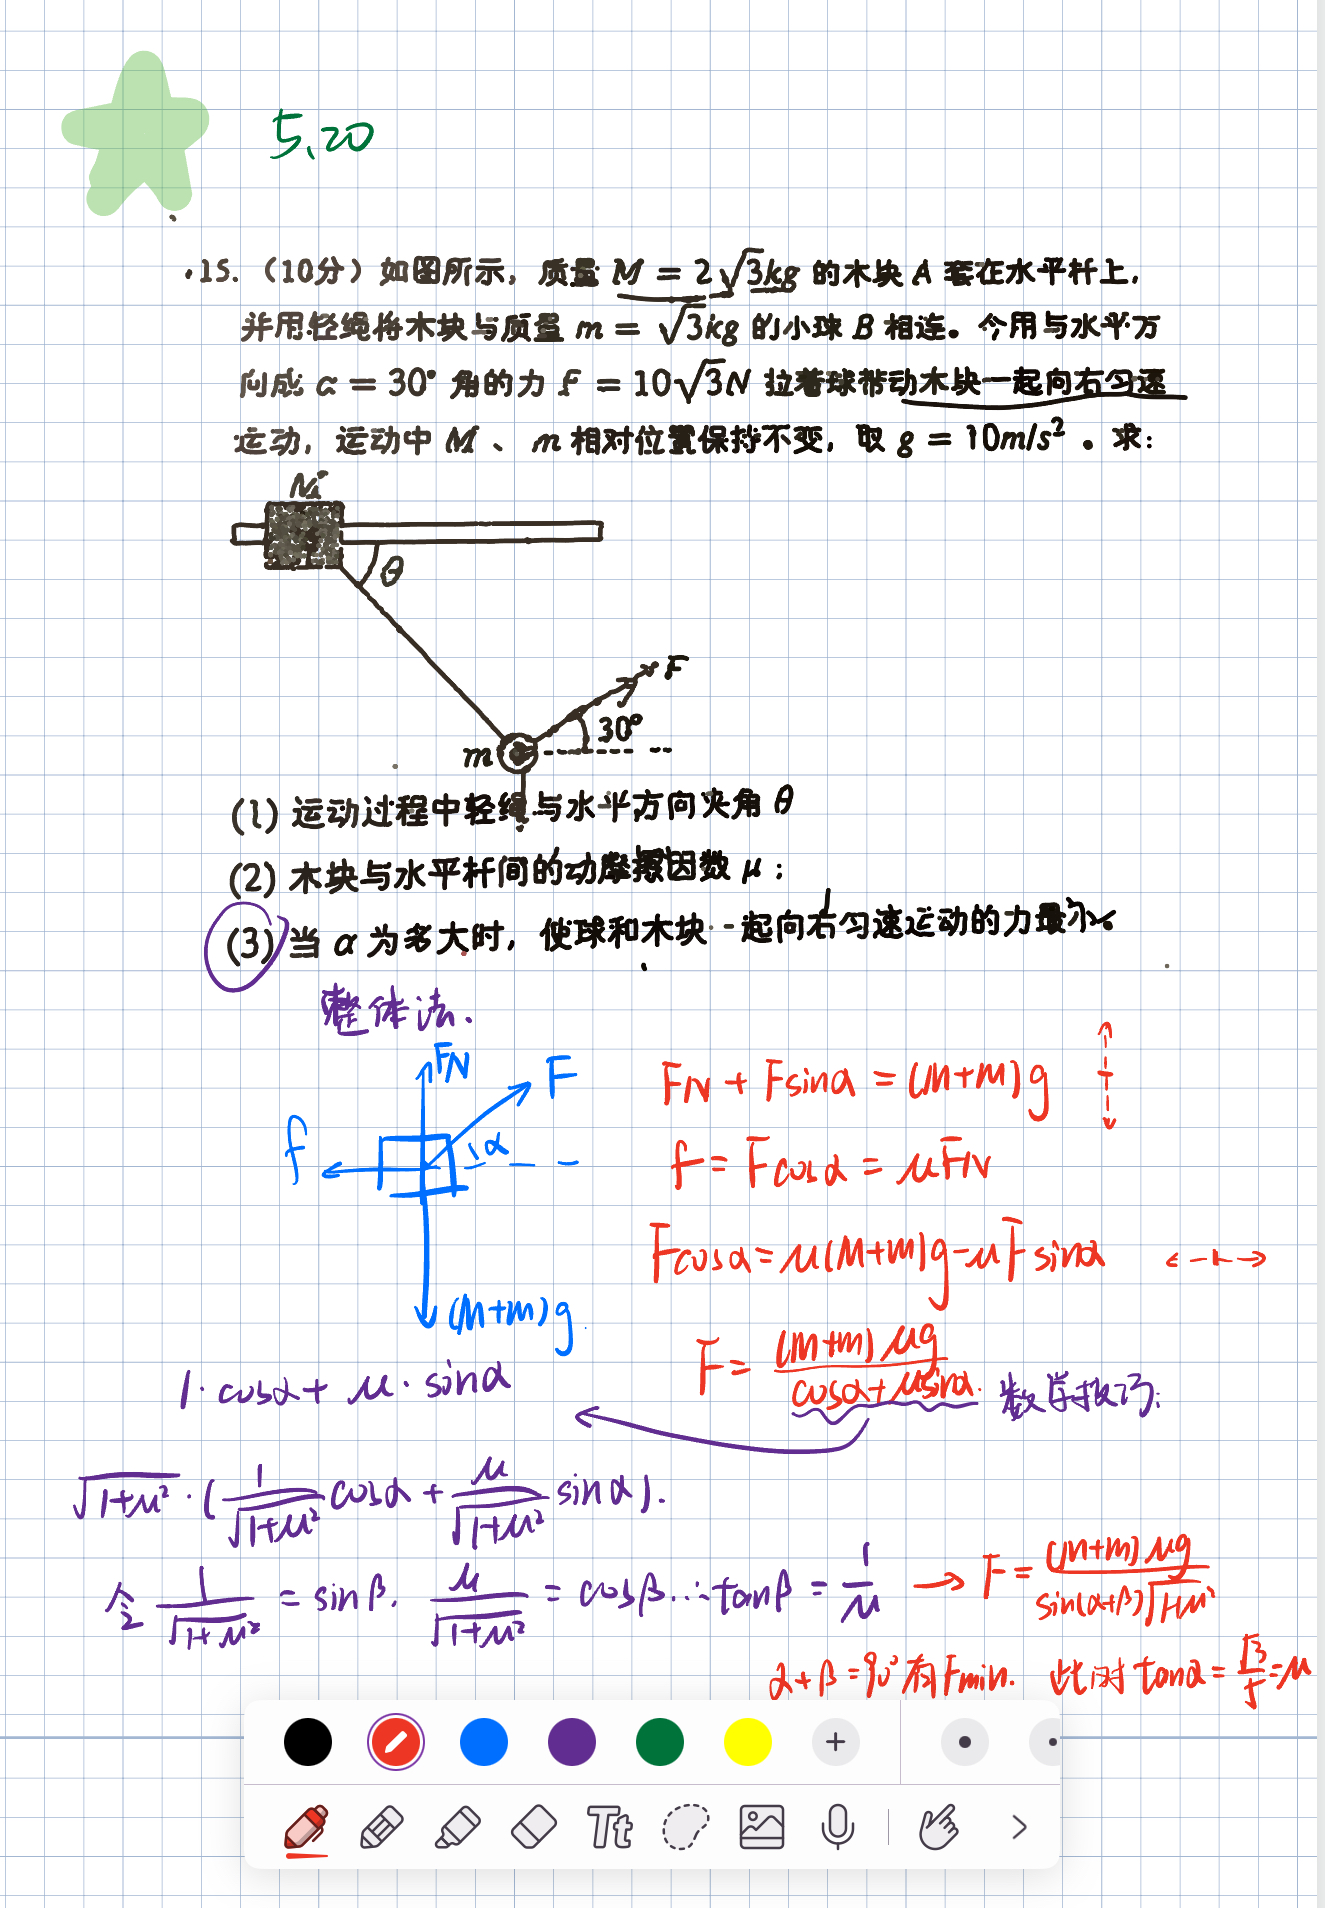 5.20
15. （10分）如图所示，质量 M = 2√3kg 的木块 A 套在水平杆上，
并用轻绳将木块与质量 m = √3kg 的小球 B 相连。今用与水平方
向成 α = 30° 角的力 F = 10√3N 拉着球带动木块一起向右匀速
运动，运动中 M 、 m 相对位置保持不变，取 g = 10m/s² 。求：
θ
F
30°
m
(1) 运动过程中轻绳与水平方向夹角 θ
(2) 木块与水平杆间的动摩擦因数 μ：
(3) 当 α 为多大时，使球和木块一起向右匀速运动的力最小
整体法.
FN
F
f
α
(M+m)g
FN + Fsinα = (M+m)g
f = Fcosα = μFN
Fcosα = μ(M+m)g - μFsinα
F = (M+m)μg / (cosα + μsinα). 数学技巧:
1·cosα + μ·sinα
√(1+μ²) · (1/√(1+μ²) cosα + μ/√(1+μ²) sinα).
令 1/√(1+μ²) = sinβ. μ/√(1+μ²) = cosβ ∴ tanβ = 1/μ → F = (M+m)μg / sin(α+β)√(1+μ²)
α+β = 90° 有Fmin. 此时 tanα = √3/5 = μ
Tt